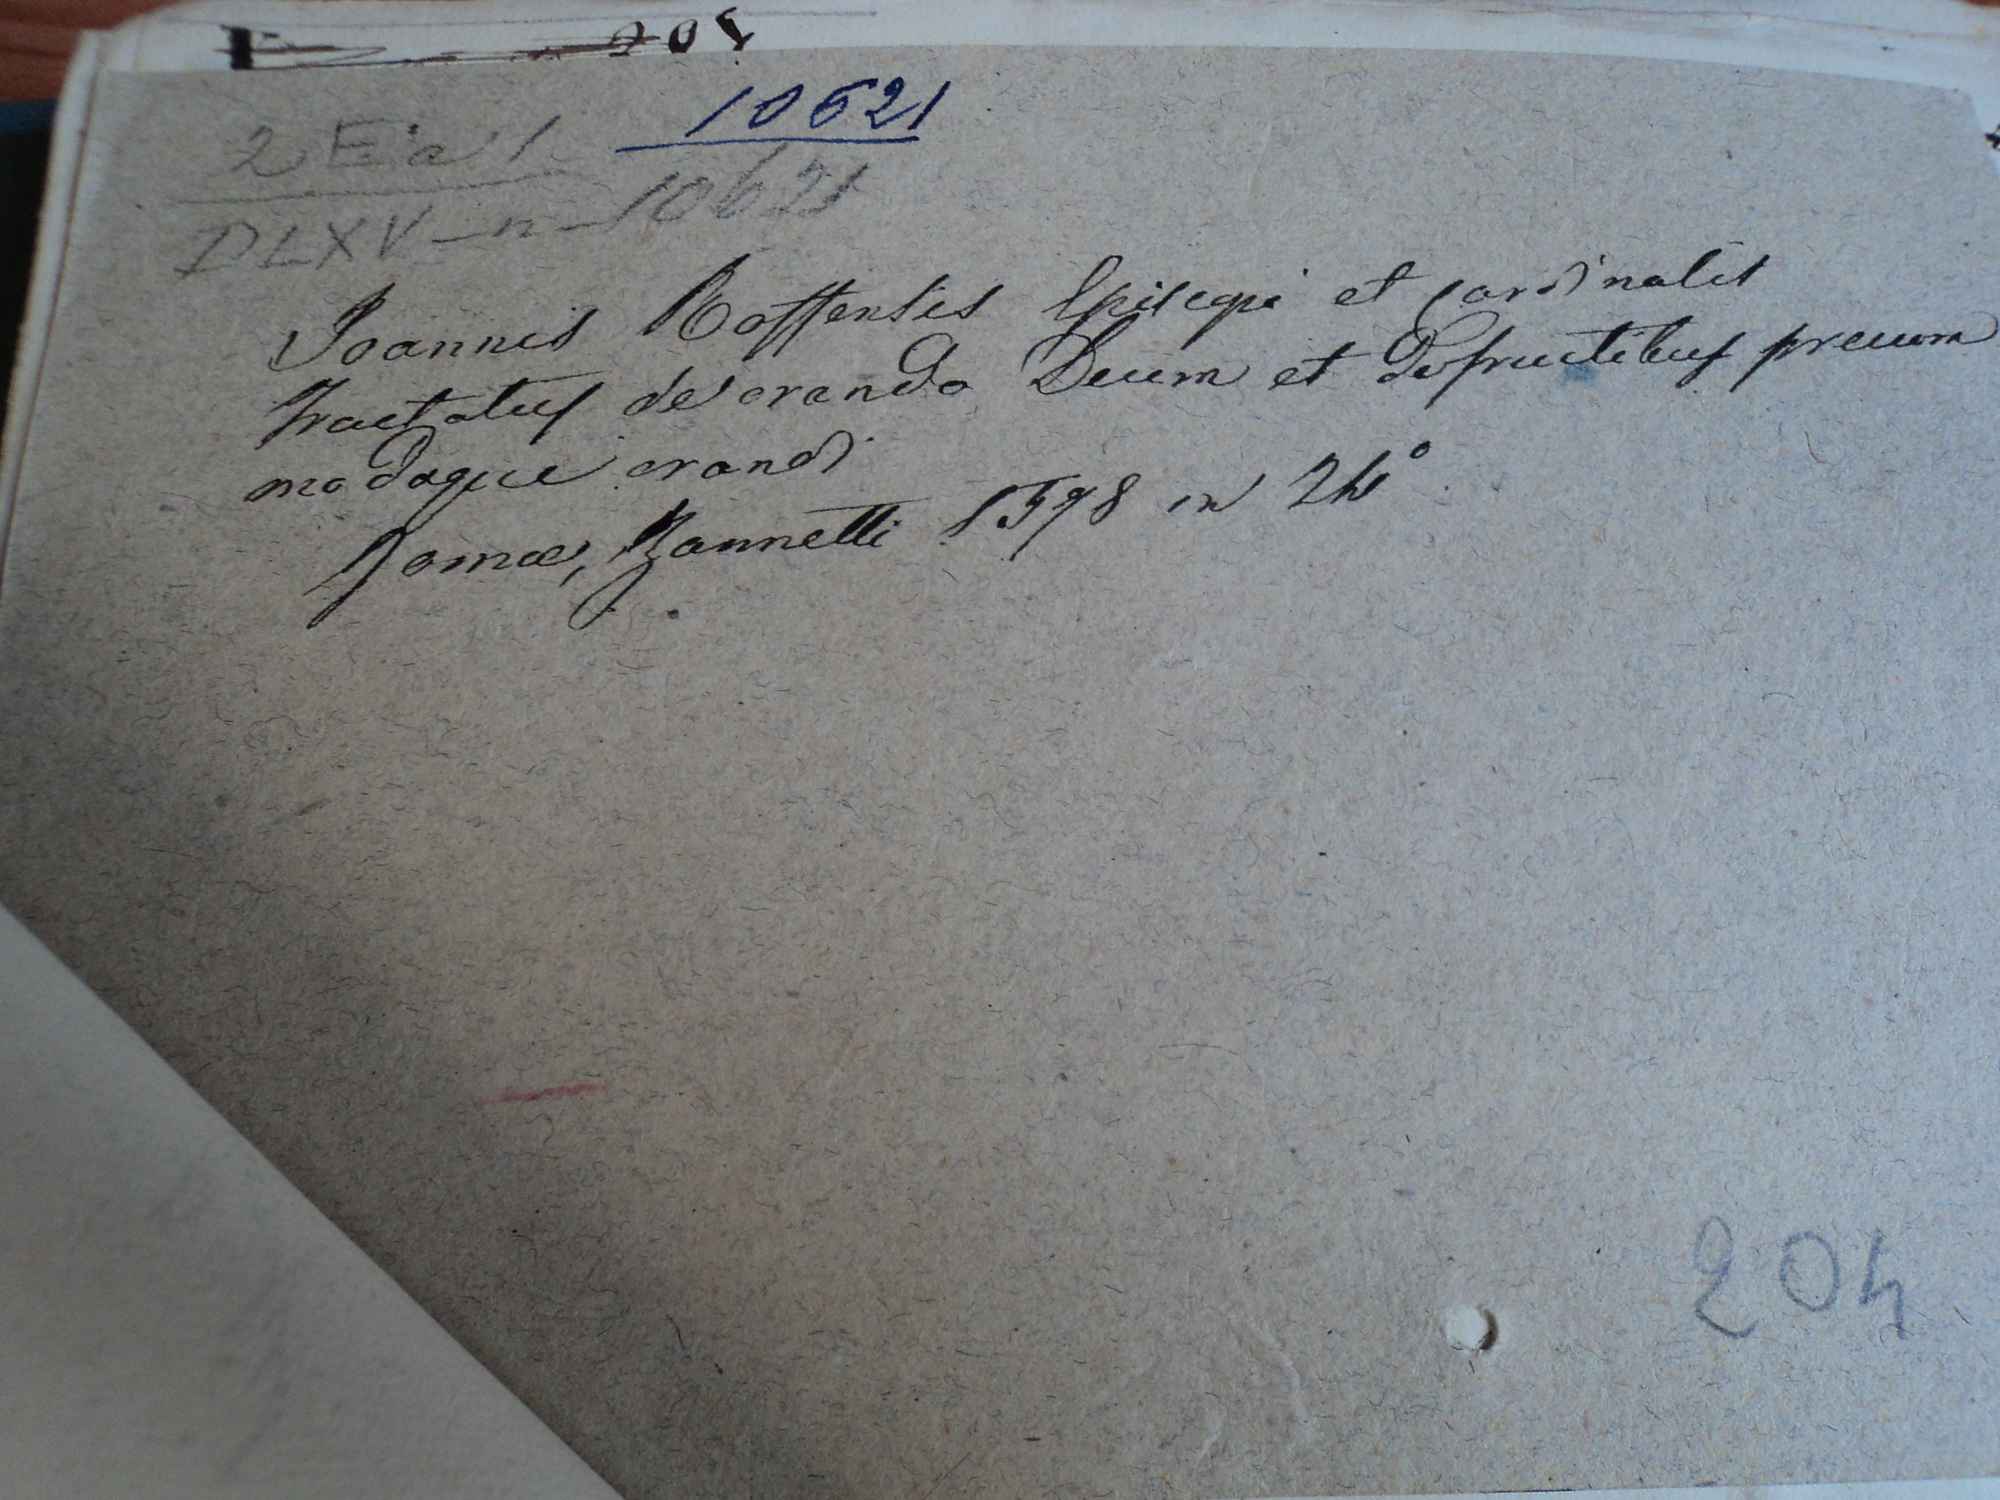 204
10621
2 E a 1
DLXV-n-10621
Joannis Roffensis Episcopi et Cardinalis
tractatus de orando Deum et de fructibus precum
modoque orandi
Romae, Zannetti 1598 in 24°
204